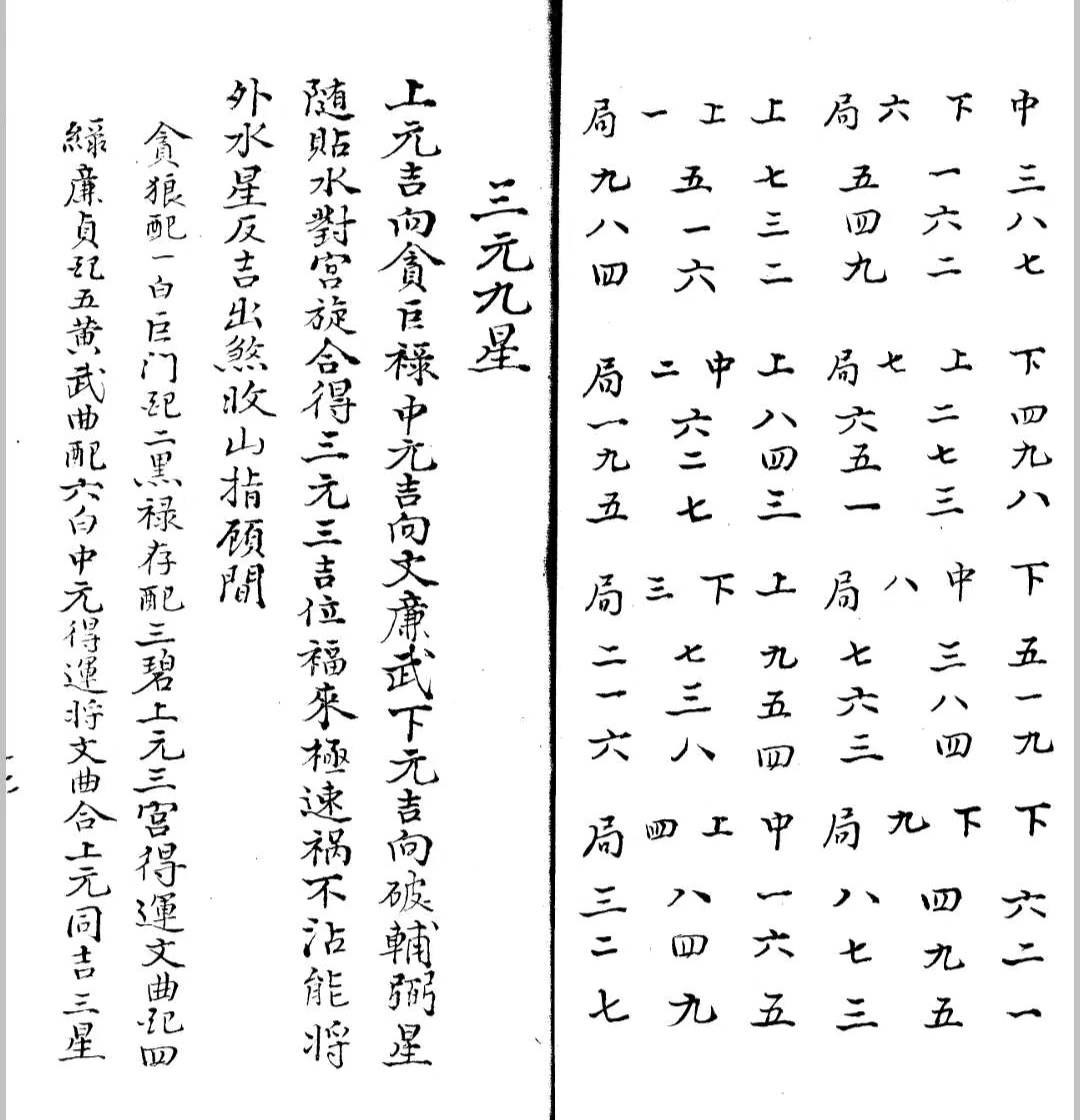 中三八七下四九八下五一九下六二一
下一六二上二七三中三八四下四九五
六局五四九七局六五一八局七六三九局八七三
上七三二上八四三上九五四中一六五
上五一六中六二七下七三八上八四九
一局九八四二局一九五三局二一六四局三二七
三元九星
上元吉向貪巨祿中元吉向文廉武下元吉向破輔弼星
随貼水對宮旋合得三元三吉位福來極速祸不沾能将
外水星反吉出煞收山指顧間
貪狼配一白巨门配二黒禄存配三碧上元三宮得運文曲配四
綠廉貞配五黄武曲配六白中元得運将文曲合上元同吉三星